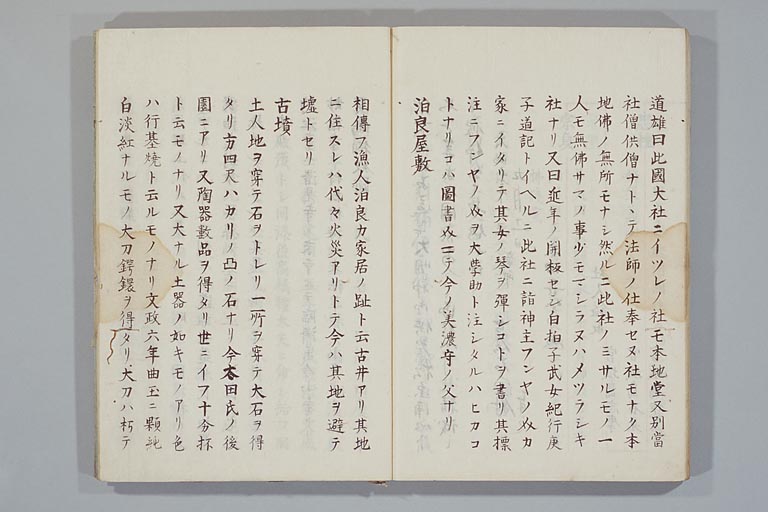 道雄曰此國大社ニイツレノ社モ本地堂又別當
社僧供僧ナトヽテ法師ノ仕奉セヌ社モナク本
地佛ノ無所モナシ然ルニ此社ノミサルモノ一
人モ無佛サマノ事少モマシラヌハメツラシキ
社ナリ又曰近年ノ開板セシ白拍子武女紀行庚
子道記トイヘルニ此社ニ詣神主フンヤノ　カ
家ニイタリテ其女ノ琴ヲ彈シコトヲ書リ其標
注ニフンヤノ　ヲ大學助ト注シタルハヒカコ
トナリコハ圖書　ニテ今ノ美濃守ノ父ナリ
泊良屋敷
相傳フ漁人泊良カ家居ノ趾ト云古井アリ其地
ニ住スレハ代々火災アリトテ今ハ其地ヲ避テ
墟トセリ
古墳
土人地ヲ穿テ石ヲトレリ一所ヲ穿テ大石ヲ得
タリ方四尺ハカリノ凸ノ石ナリ今　田氏ノ後
園ニアリ又陶器數品ヲ得タリ世ニイフ十分杯
ト云モノナリ又大ナル土器ノ如キモノアリ色
ハ行基燒ト云ルモノナリ文政六年曲玉ニ顆純
白淡紅ナルモノ大刀鍔鐶ヲ得タリ大刀ハ朽テ